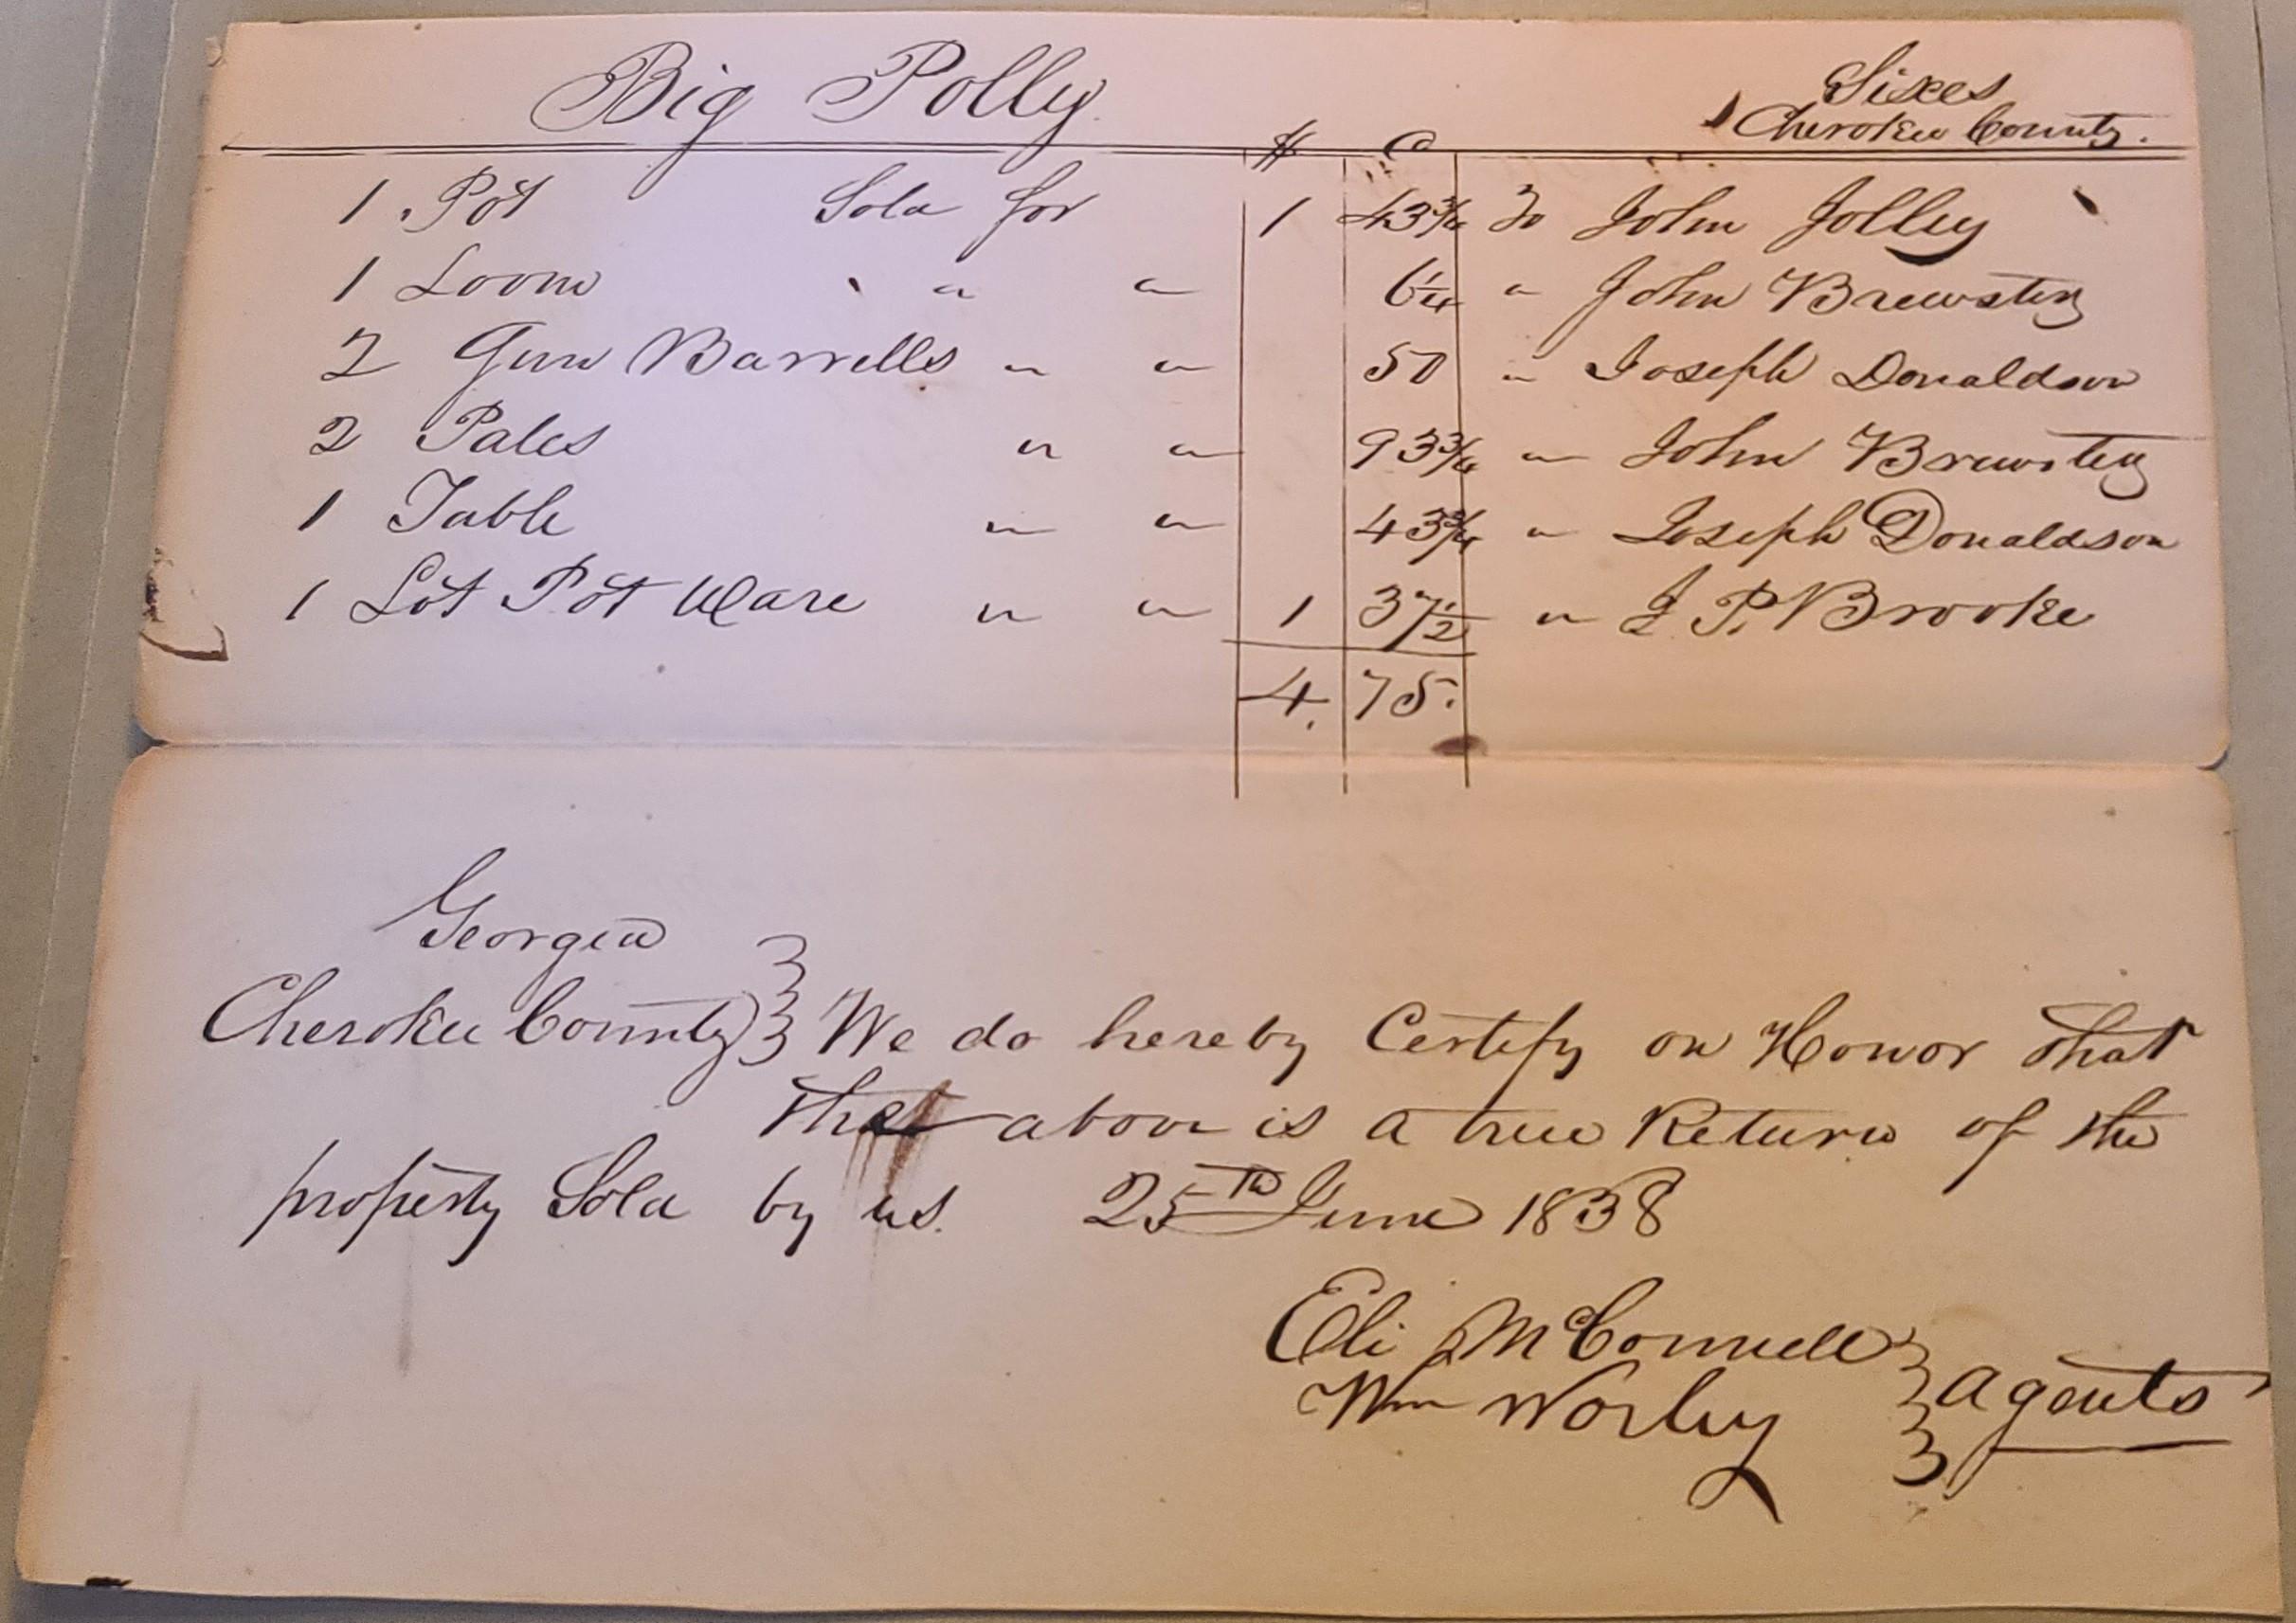 Big Polly.
Sixes
Cherokee County.
$ C
1 Pot Sold for 1 43¾ To John Jolley
1 Loom " " 6¼ " John Brewster
2 Gun Barrells " " 50 " Joseph Donaldson
2 Pales " " 93¾ " John Brewster
1 Table " " 43¾ " Joseph Donaldson
1 Lot Pot Ware " " 1 37½ " J. P. Brooke
4. 75.
Georgia
Cherokee County } We do hereby Certify on Honor that
the above is a true Return of the
property Sold by us. 25th June 1838
Eli McConnell
Wm Worley } Agents